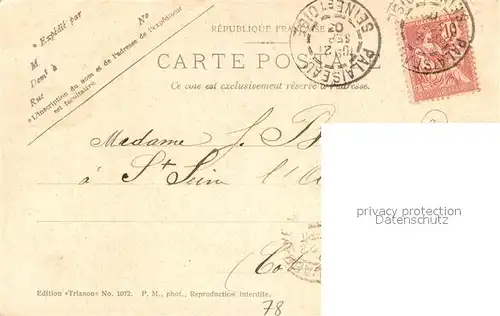 * Expédié par
No
M
Demt à
Rue
*L'inscription du nom et de l'adresse de l'expéditeur
est facultative.
RÉPUBLIQUE FRANÇAISE
CARTE POSTALE
Ce côté est exclusivement réservé à l'adresse.
PALAISEAU
SEINE-ET-OISE
10
Madame J. B
à St Seine l'A
Cot
privacy protection
Datenschutz
Edition «Trianon» No. 1072. P. M., phot., Reproduction interdite.
78